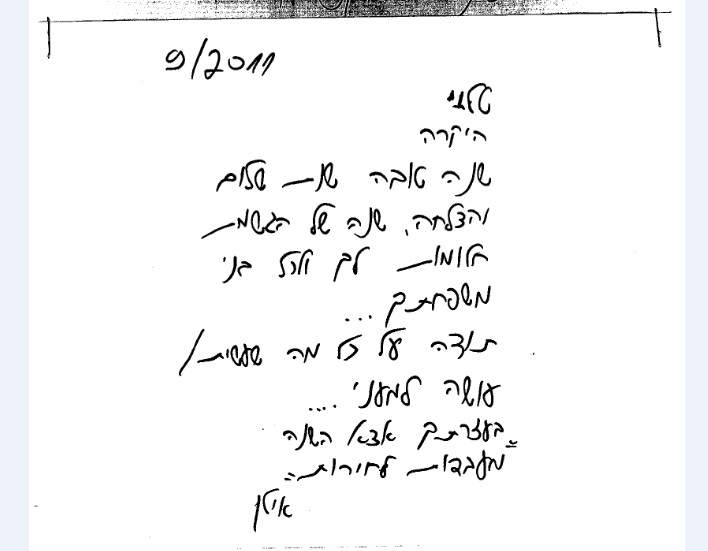 9/2011
טלני
היקרה
שנה טובה שנת שלום
והצלחה, שנה של הגשמת
חלומות לך ולכל בני
משפחתך...
תודה על כל מה שעשית/
עושה למעני....
בעזרתך אצא השנה
"מעבדות לחירות"
אילן